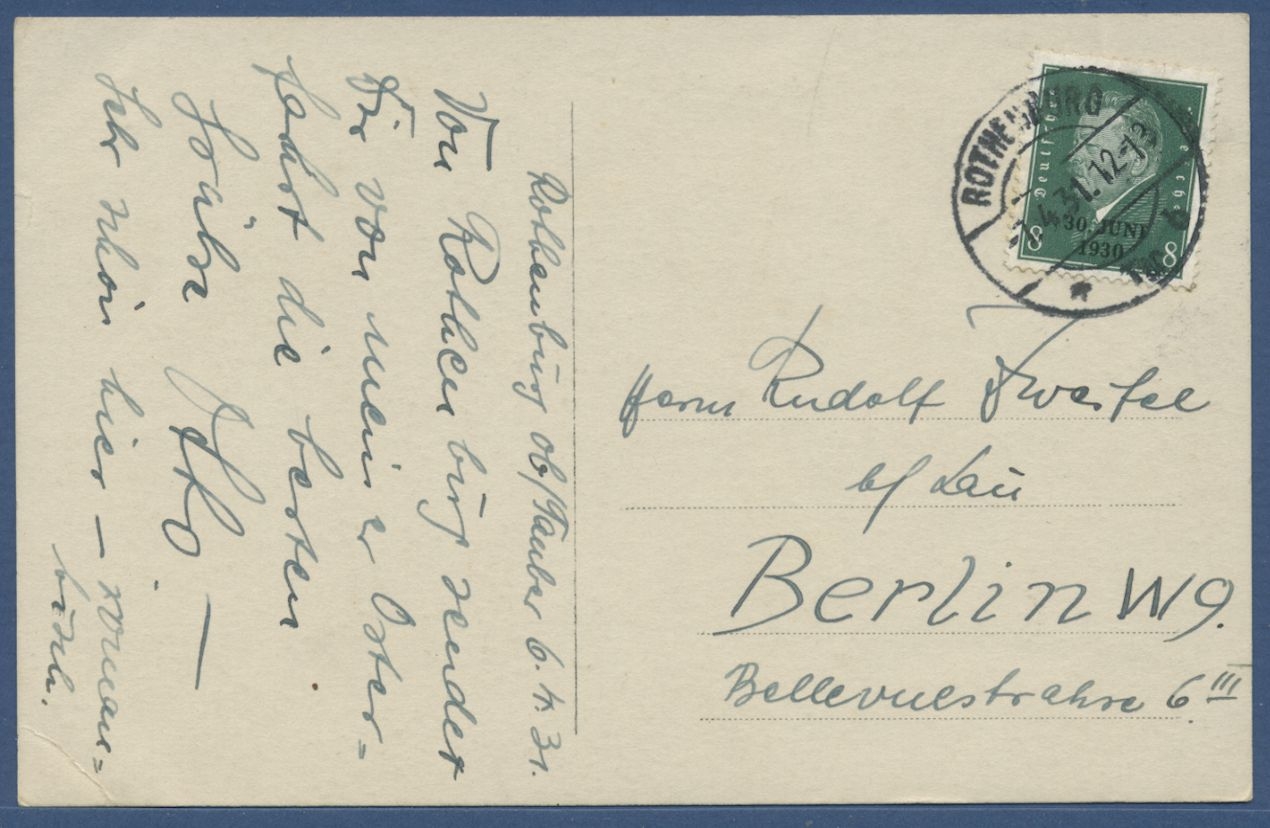 Rothenburg ob/Tauber 6. 4. 31.
Von Rothenburg sendet
Dir von meiner Oster=
fahrt die besten
Grüße
Sehr schön hier – roman=
tisch.
ROTHENBURG
4.31.12-13
b
Deutsches Reich
30. JUNI
1930
8 8
Herrn Rudolf Zweifel
b/ Lau
Berlin W9.
Bellevuestrahse 6 III